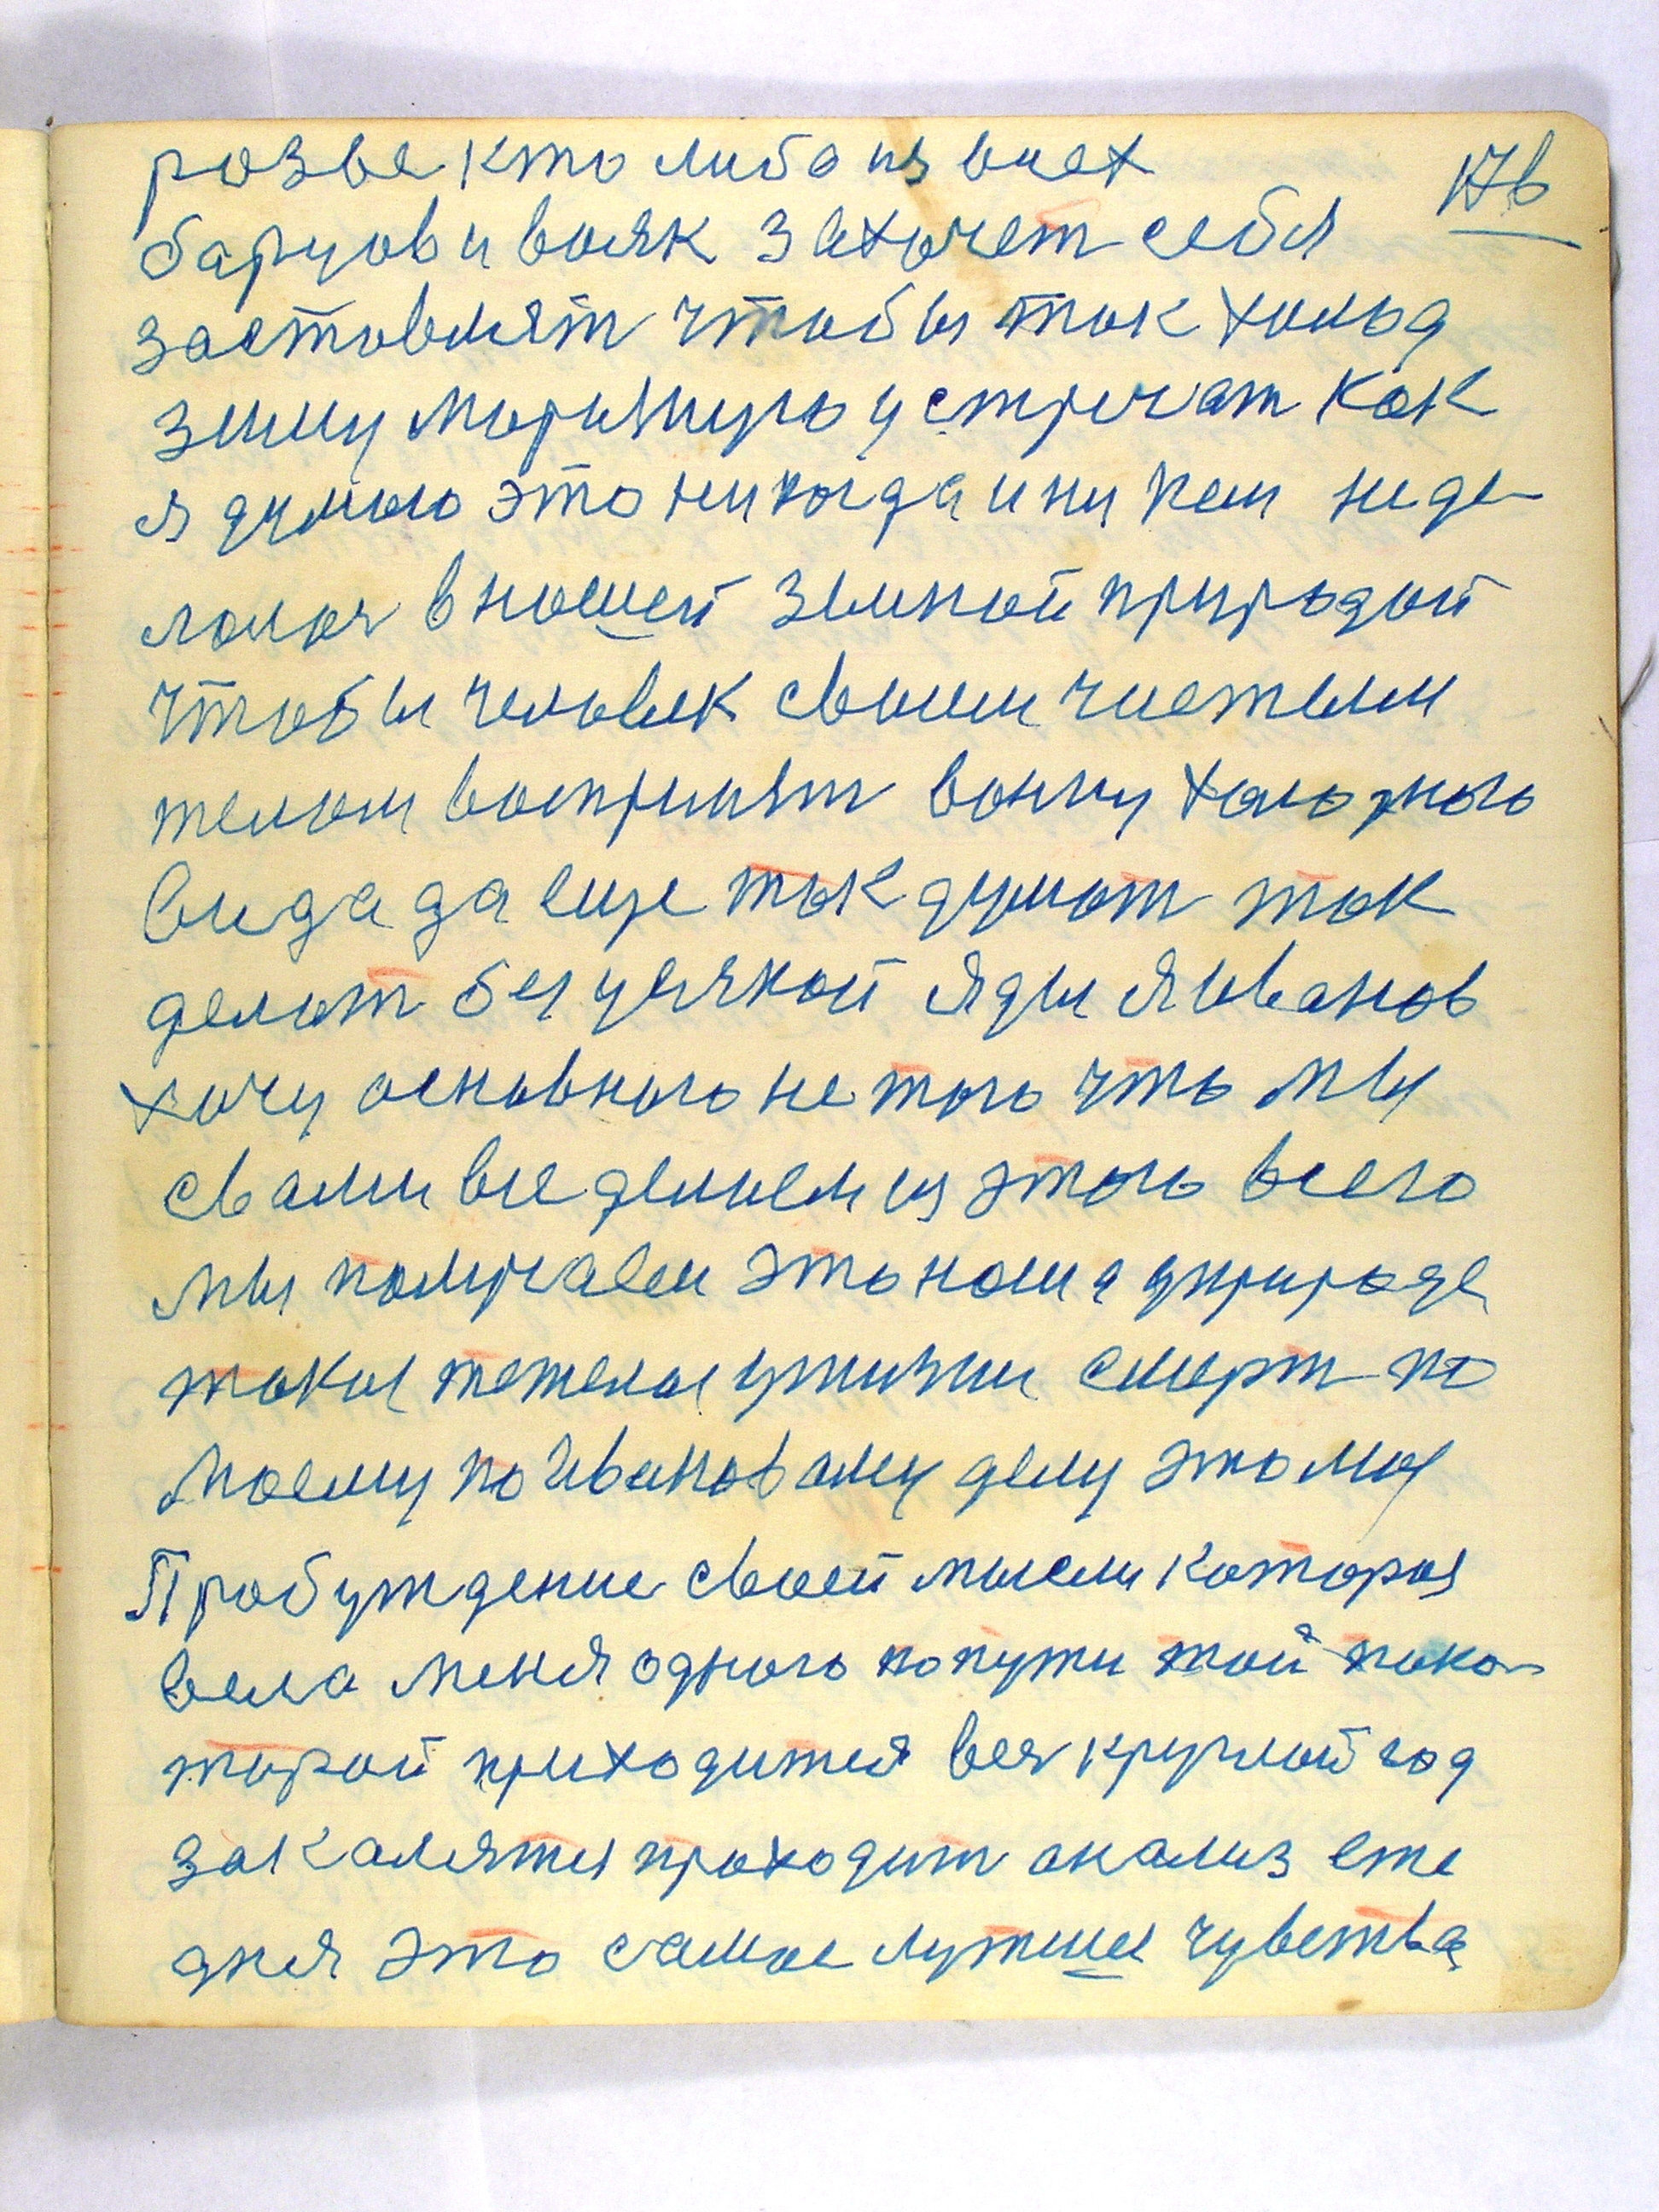 176
розве кто либо из всех
барцов и вояк захочет себя
заставлят чтобы так холод
зиму морозную устречат как
я думаю это никогда и ни кем не де-
лалоя в нашей земной природой
чтобы человек своим чистыем
телом воспринят волну холодного
вида да еще так думат так
делат без усякой яды я иванов
хочу основного не того что мы
с вами все делием из этого всего
мы получаем это нам а уприроде
такие тежелые ужизни смерт по
моему по Ивановому делу это мое
Пробуждение своей мысли которая
вела меня одного по пути той по ко-
торой приходится вся круглый год
закалятся проходит анализ еже
дня это самое лутшее чувства